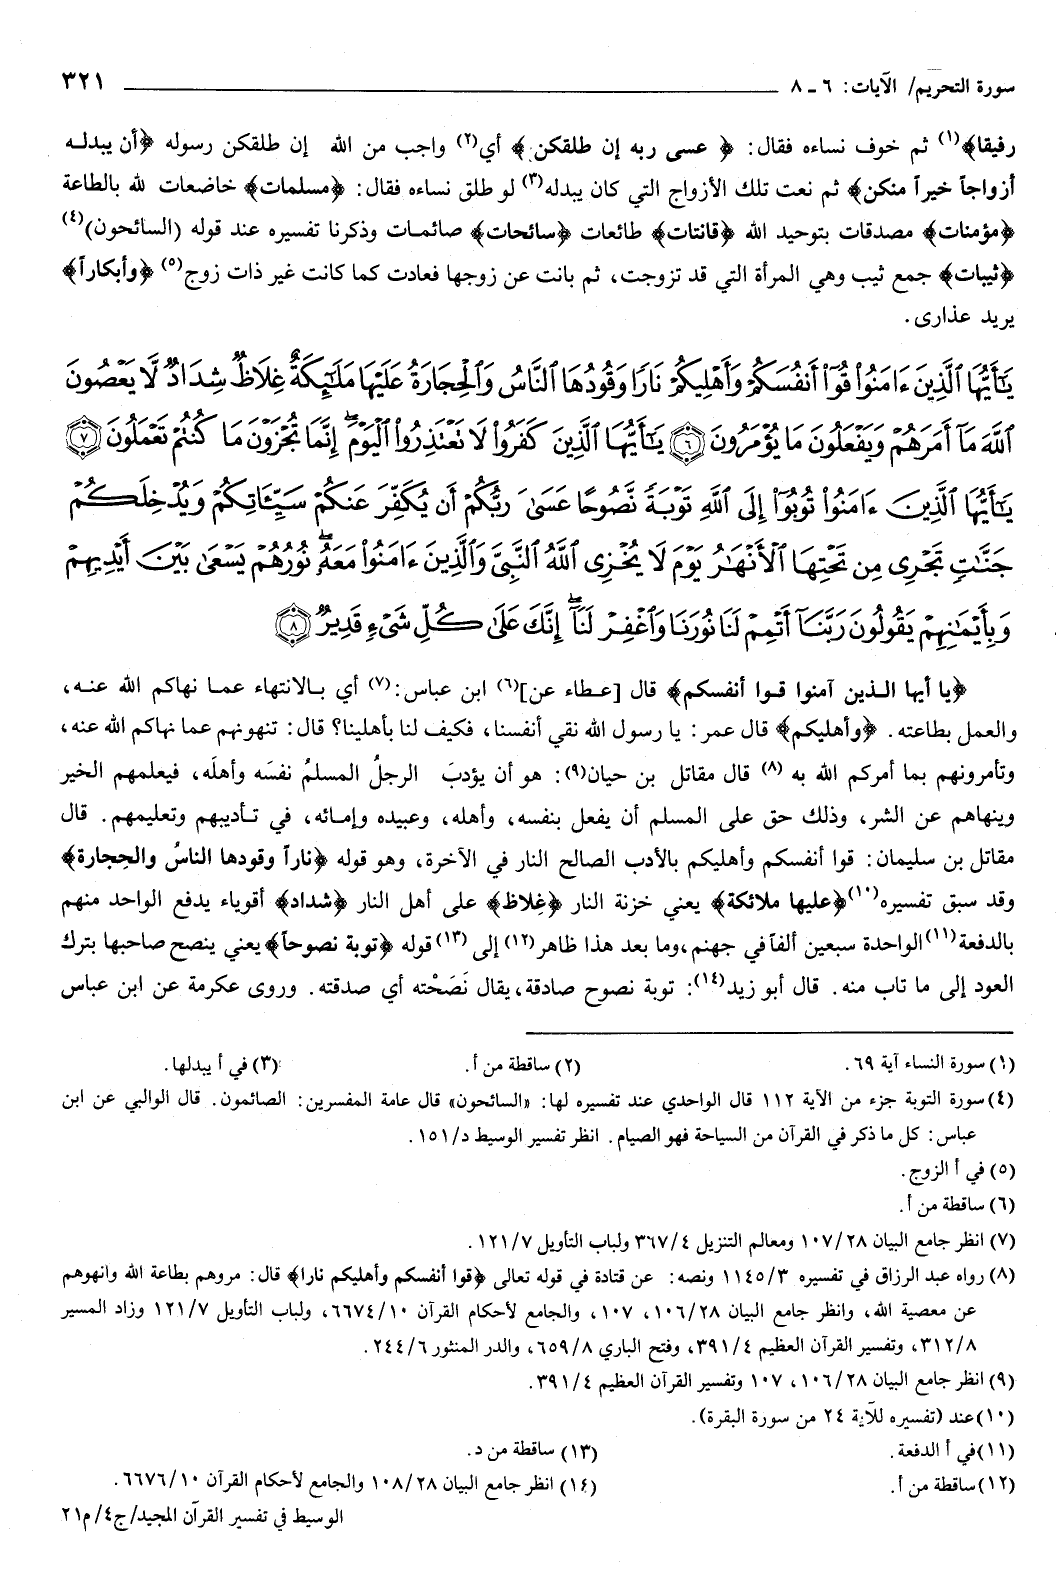 سورة التحريم/ الآيات: ٦ ـ ٨ ٣٢١
رفيقا﴾(١) ثم خوف نساءه فقال: ﴿ عسى ربه إن طلقكن ﴾ أي(٢) واجب من الله إن طلقكن رسوله ﴿أن يبدلـه
أزواجاً خيراً منكن﴾ ثم نعت تلك الأزواج التي كان يبدله(٣) لو طلق نساءه فقال: ﴿مسلمات﴾ خاضعات لله بالطاعة
﴿مؤمنات﴾ مصدقات بتوحيد الله ﴿قانتات﴾ طائعات ﴿سائحات﴾ صائمـات وذكرنا تفسيره عند قوله (السائحون)(٤)
﴿ثيبات﴾ جمع ثيب وهي المرأة التي قد تزوجت، ثم بانت عن زوجها فعادت كما كانت غير ذات زوج(٥) ﴿وأبكاراً﴾
يريد عذارى.
يَٰٓأَيُّهَا ٱلَّذِينَ ءَامَنُوا۟ قُوٓا۟ أَنفُسَكُمْ وَأَهْلِيكُمْ نَارًا وَقُودُهَا ٱلنَّاسُ وَٱلْحِجَارَةُ عَلَيْهَا مَلَٰٓئِكَةٌ غِلَاظٌ شِدَادٌ لَّا يَعْصُونَ
ٱللَّهَ مَآ أَمَرَهُمْ وَيَفْعَلُونَ مَا يُؤْمَرُونَ ٦ يَٰٓأَيُّهَا ٱلَّذِينَ كَفَرُوا۟ لَا تَعْتَذِرُوا۟ ٱلْيَوْمَ ۖ إِنَّمَا تُجْزَوْنَ مَا كُنتُمْ تَعْمَلُونَ ٧
يَٰٓأَيُّهَا ٱلَّذِينَ ءَامَنُوا۟ تُوبُوٓا۟ إِلَى ٱللَّهِ تَوْبَةً نَّصُوحًا عَسَىٰ رَبُّكُمْ أَن يُكَفِّرَ عَنكُمْ سَيِّـَٔاتِكُمْ وَيُدْخِلَكُمْ
جَنَّٰتٍ تَجْرِى مِن تَحْتِهَا ٱلْأَنْهَٰرُ يَوْمَ لَا يُخْزِى ٱللَّهُ ٱلنَّبِىَّ وَٱلَّذِينَ ءَامَنُوا۟ مَعَهُۥ ۖ نُورُهُمْ يَسْعَىٰ بَيْنَ أَيْدِيهِمْ
وَبِأَيْمَٰنِهِمْ يَقُولُونَ رَبَّنَآ أَتْمِمْ لَنَا نُورَنَا وَٱغْفِرْ لَنَآ ۖ إِنَّكَ عَلَىٰ كُلِّ شَىْءٍ قَدِيرٌ ٨
﴿يا أيها الـذين آمنوا قـوا أنفسكم﴾ قال [عـطاء عن](٦) ابن عباس:(٧) أي بـالانتهاء عمـا نهاكم الله عنـه،
والعمل بطاعته. ﴿وأهليكم﴾ قال عمر: يا رسول الله نقي أنفسنا، فكيف لنا بأهلينا؟ قال: تنهونهم عما نهاكم الله عنه،
وتأمرونهم بما أمركم الله به (٨) قال مقاتل بن حيان(٩): هو أن يؤدبَ الرجلُ المسلمُ نفسَه وأهلَه، فيعلمهم الخير
وينهاهم عن الشر، وذلك حق على المسلم أن يفعل بنفسه، وأهله، وعبيده وإمـائه، في تـأديبهم وتعليمهم. قال
مقاتل بن سليمان: قوا أنفسكم وأهليكم بالأدب الصالح النار في الآخرة، وهو قوله ﴿ناراً وقودها الناسُ والحِجارة﴾
وقد سبق تفسيره(١٠) ﴿عليها ملائكة﴾ يعني خزنة النار ﴿غِلاظ﴾ على أهل النار ﴿شداد﴾ أقوياء يدفع الواحد منهم
بالدفعة(١١) الواحدة سبعين ألفاً في جهنم، وما بعد هذا ظاهر (١٢) إلى (١٣) قوله ﴿توبة نصوحاً﴾ يعني ينصح صاحبها بترك
العود إلى ما تاب منه. قال أبو زيد(١٤): توبة نصوح صادقة، يقال نَصَحْته أي صدقته. وروى عكرمة عن ابن عباس
(١) سورة النساء آية ٦٩. (٢) ساقطة من أ. (٣) في أ يبدلها.
(٤) سورة التوبة جزء من الآية ١١٢ قال الواحدي عند تفسيره لها: «السائحون» قال عامة المفسرين: الصائمون. قال الوالبي عن ابن
عباس: كل ما ذكر في القرآن من السياحة فهو الصيام. انظر تفسير الوسيط د/١٥١.
(٥) في أ الزوج.
(٦) ساقطة من أ.
(٧) انظر جامع البيان ١٠٧/٢٨ ومعالم التنزيل ٣٦٧/٤ ولباب التأويل ١٢١/٧.
(٨) رواه عبد الرزاق في تفسيره ١١٤٥/٣ ونصه: عن قتادة في قوله تعالى ﴿قوا أنفسكم وأهليكم نارا﴾ قال: مروهم بطاعة الله وانهوهم
عن معصية الله، وانظر جامع البيان ١٠٦/٢٨، ١٠٧، والجامع لأحكام القرآن ٦٦٧٤/١٠، ولباب التأويل ١٢١/٧ وزاد المسير
٣١٢/٨، وتفسير القرآن العظيم ٣٩١/٤، وفتح الباري ٦٥٩/٨، والدر المنثور ٢٤٤/٦.
(٩) انظر جامع البيان ١٠٦/٢٨، ١٠٧ وتفسير القرآن العظيم ٣٩١/٤.
(١٠) عند (تفسيره للآية ٢٤ من سورة البقرة).
(١١) في أ الدفعة. (١٣) ساقطة من د.
(١٢) ساقطة من أ. (١٤) انظر جامع البيان ١٠٨/٢٨ والجامع لأحكام القرآن ٦٦٧٦/١٠.
الوسيط في تفسير القرآن المجيد/ ج٤/ م٢١